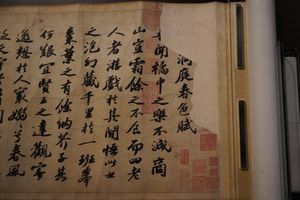 洞庭春色賦
聞橘中之樂不減商
山豈霜餘之不食而四老
人者游戲於其間悟此世
之泡幻藏千里於一班舉
棗葉之有餘納芥子其
何艱宜賢王之達觀寄
逸想於人寰嫋兮春風